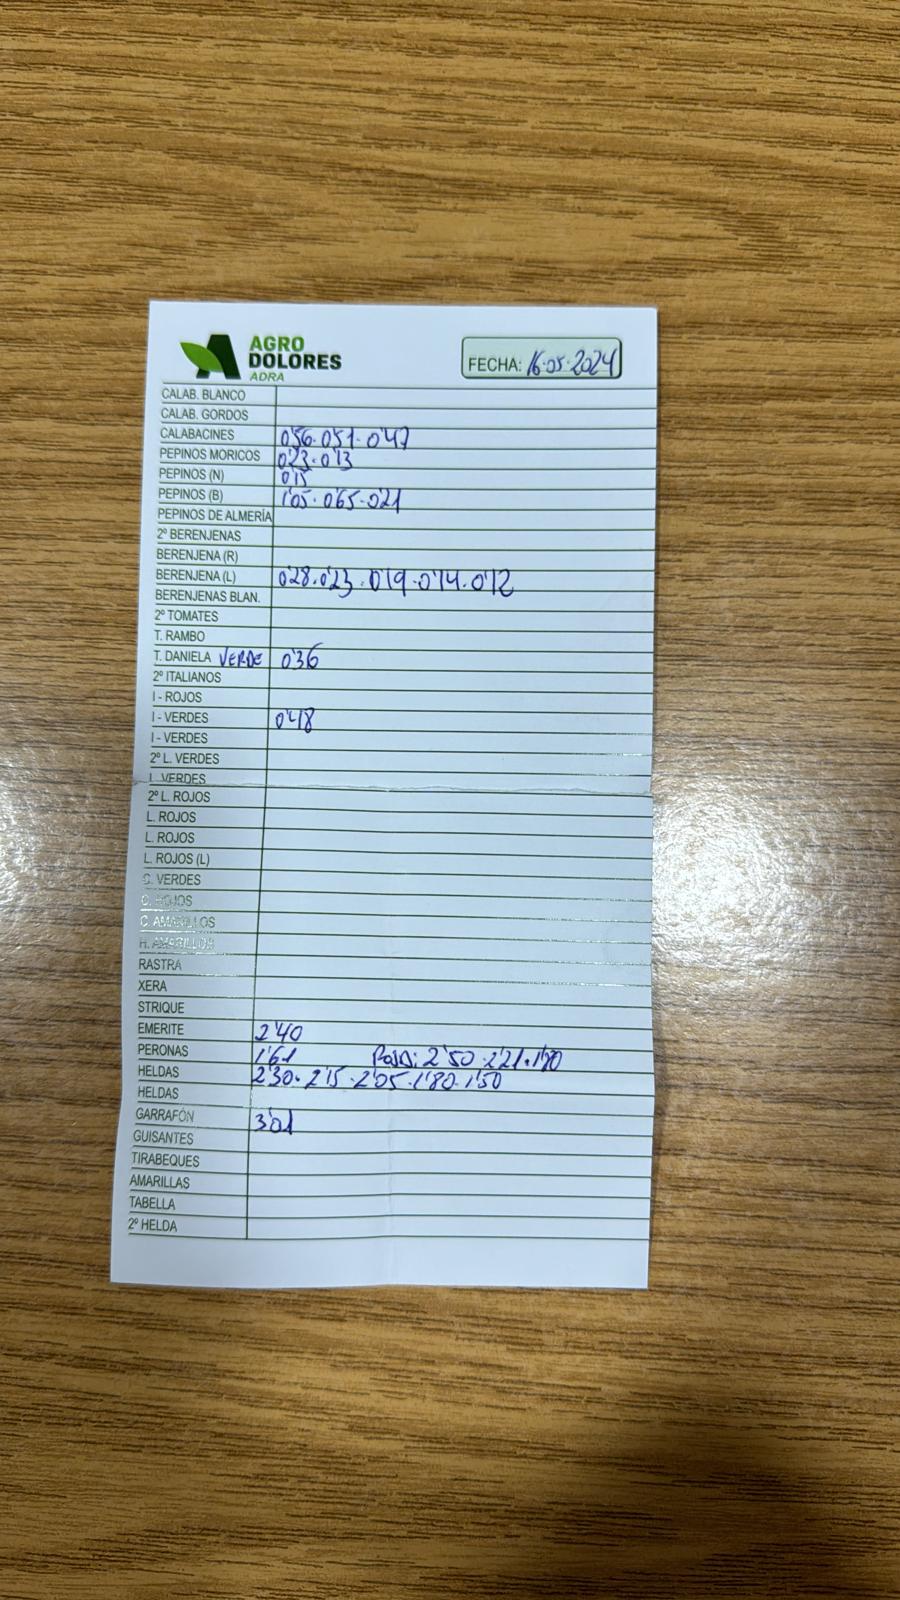 AGRO
DOLORES
ADRA
FECHA: 16·05·2024
CALAB. BLANCO
CALAB. GORDOS
CALABACINES 0'56·0'51·0'47
PEPINOS MORICOS 0'23·0'13
PEPINOS (N) 0'15
PEPINOS (B) 1'05·0'65·0'21
PEPINOS DE ALMERÍA
2º BERENJENAS
BERENJENA (R)
BERENJENA (L) 0'28·0'23·0'19·0'14·0'12
BERENJENAS BLAN.
2º TOMATES
T. RAMBO
T. DANIELA VERDE 0'36
2º ITALIANOS
I - ROJOS
I - VERDES 0'48
I - VERDES
2º L. VERDES
L. VERDES
2º L. ROJOS
L. ROJOS
L. ROJOS
L. ROJOS (L)
C. VERDES
C. ROJOS
C. AMARILLOS
H. AMARILLOS
RASTRA
XERA
STRIQUE
EMERITE 2'40
PERONAS 1'61 ROJA: 2'50·2'21·1'80
HELDAS 2'30·2'15·2'05·1'80·1'50
HELDAS
GARRAFÓN 3'01
GUISANTES
TIRABEQUES
AMARILLAS
TABELLA
2º HELDA